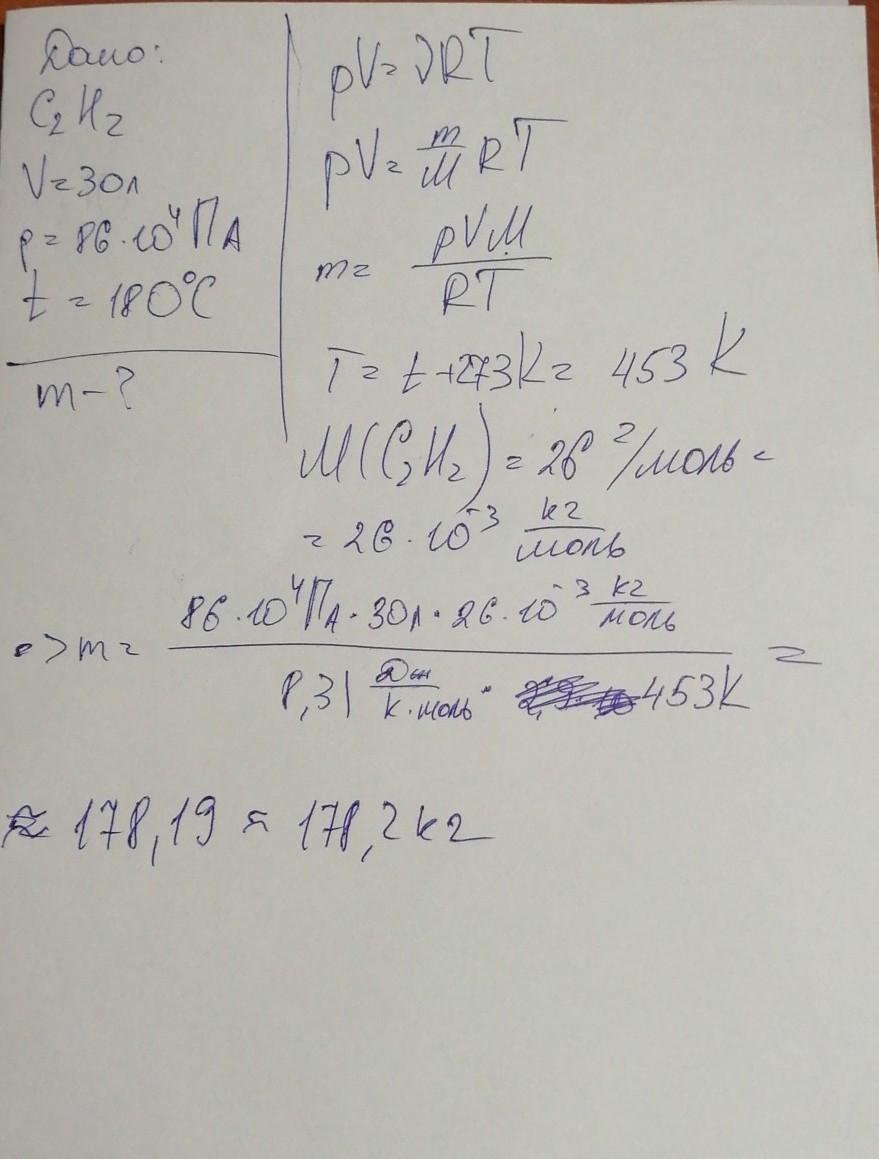 Дано:
C₂H₂
V=30л
p=86·10⁴ПА
t=180°C
m-?
pV=νRT
pV=m/M RT
m=pVM/RT
T=t+273K=453K
M(C₂H₂)=26г/моль=
=26·10⁻³ кг/моль
=>m=86·10⁴ПА·30л·26·10⁻³ кг/моль / 8,31 Дж/К·моль·453К =
≈178,19≈178,2кг